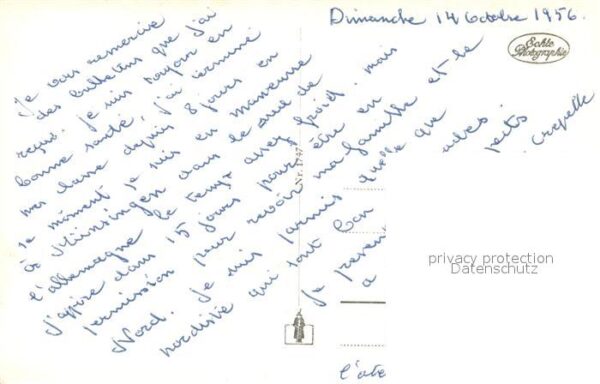 Dimanche 14 Octobre 1956.
Echte
Photographie
Je vous remercie
des bulletins que j'ai
reçu. je suis toujours en
bonne santé, j'ai terminé
mes classe depuis 8 jours en
ce moment je suis en manœuvre
à Münsingen dans le sud de
l'allemagne le temps assez froid. mais
j'espère dans 15 jours pour être en
permission pour revoir ma famille et le
Nord. je suis parmis quelle que
nordiste qui sont bon
je
a
ades.
petits
Crepelle
l'ate
Nr. 1747
privacy protection
Datenschutz